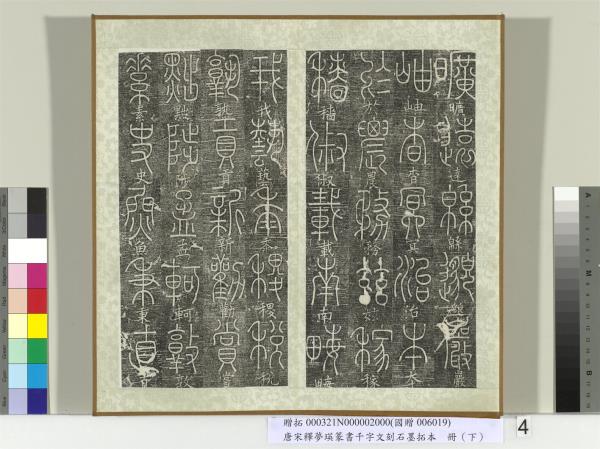 曠遠緜邈巖
岫杳冥治本
於農務茲稼
穡俶載南畝
我藝黍稷稅
熟貢新勸賞
黜陟孟軻敦
素史魚秉直
贈拓 000321N000002000(國贈 006019)
唐宋釋夢瑛篆書千字文刻石墨拓本 冊（下）
4